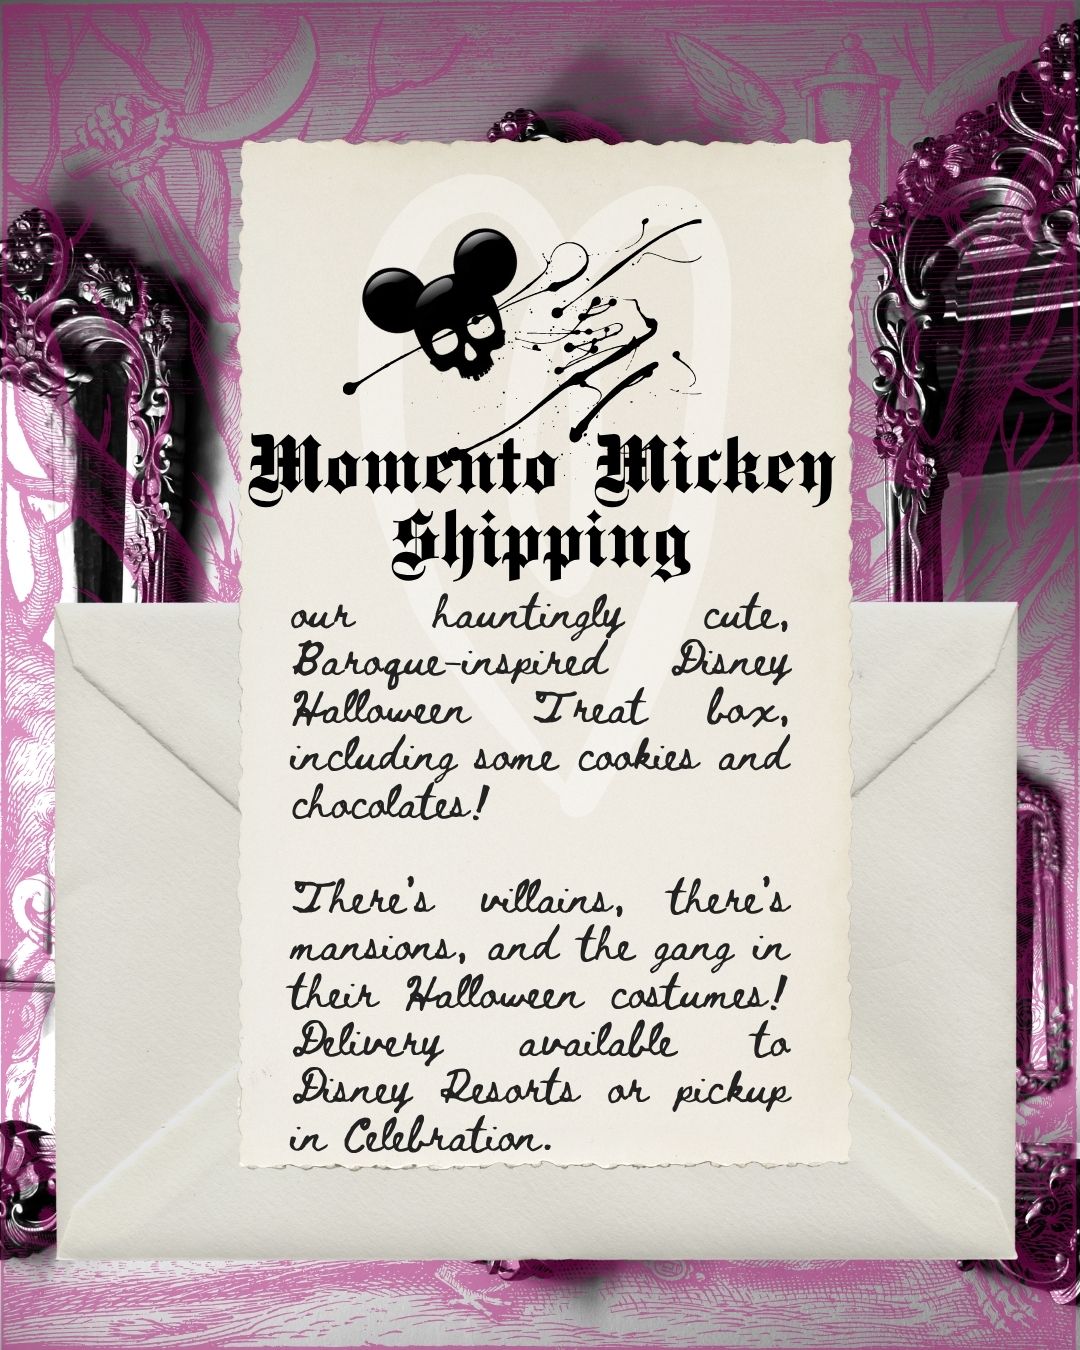 Momento Mickey
Shipping
our hauntingly cute,
Baroque-inspired Disney
Halloween Treat box,
including some cookies and
chocolates!
There's villains, there's
mansions, and the gang in
their Halloween costumes!
Delivery available to
Disney Resorts or pickup
in Celebration.